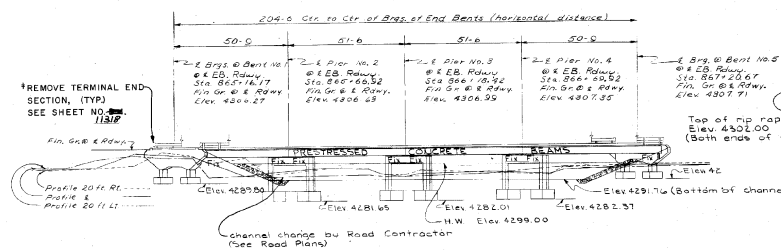 204-6 Ctr. to Ctr. of Brgs. of End Bents (horizontal distance)
50-9 51-6 51-6 50-9
℄ Brgs. @ Bent No. 1
@ ℄ EB. Rdwy.
Sta. 865+16.17
Fin. Gr. @ ℄ Rdwy.
Elev. 4306.27
℄ Pier No. 2
@ ℄ EB. Rdwy.
Sta. 865+66.92
Fin. Gr. @ ℄ Rdwy.
Elev. 4306.63
℄ Pier No. 3
@ ℄ EB. Rdwy.
Sta. 866+18.42
Fin. Gr. @ ℄ Rdwy.
Elev. 4306.99
℄ Pier No. 4
@ ℄ EB. Rdwy.
Sta. 866+69.92
Fin. Gr. @ ℄ Rdwy.
Elev. 4307.35
℄ Brg. @ Bent No. 5
@ ℄ EB. Rdwy.
Sta. 867+20.67
Fin. Gr. @ ℄ Rdwy.
Elev. 4307.71
REMOVE TERMINAL END
SECTION, (TYP.)
SEE SHEET NO.
11318
Top of rip rap
Elev. 4302.00
(Both ends of
Fin. Gr. @ ℄ Rdwy.
PRESTRESSED CONCRETE BEAMS
Fix Fix Fix Fix Fix Fix Fix Fix
Profile 20 ft. Rt.
Profile ℄
Profile 20 ft. LT.
Elev. 4289.80
Elev. 4281.65
Elev. 4282.01
H.W. Elev. 4299.00
Elev. 4282.37
Elev. 4291.76 (Bottom of channe
Elev. 42
channel change by Road Contractor
(See Road Plans)